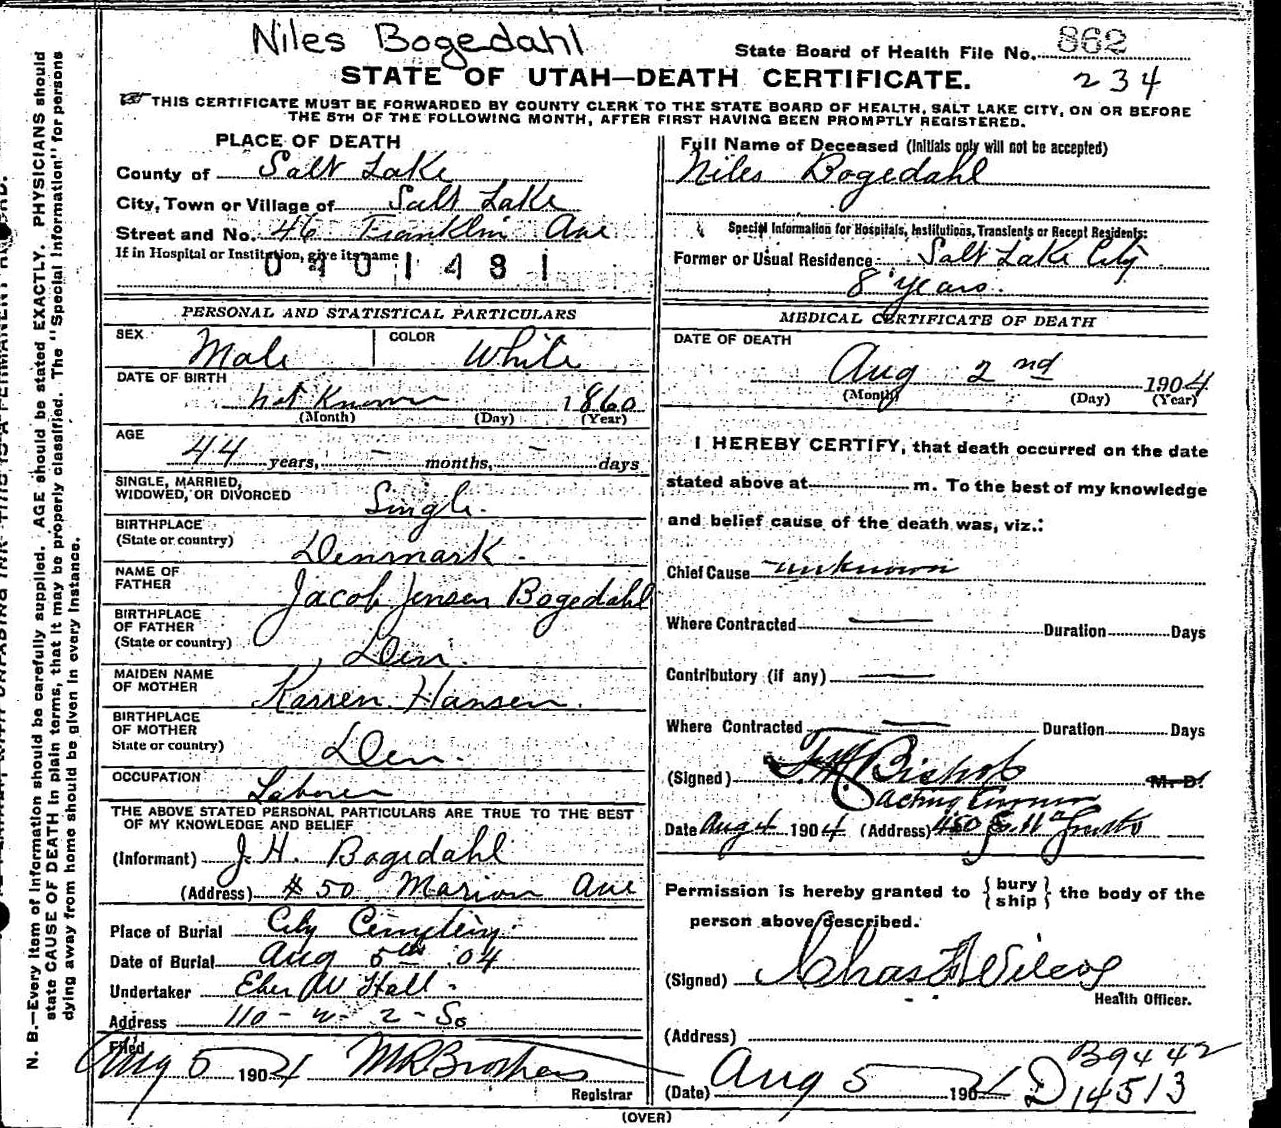 Niles Bogedahl
State Board of Health File No. 862
234
STATE OF UTAH—DEATH CERTIFICATE.
THIS CERTIFICATE MUST BE FORWARDED BY COUNTY CLERK TO THE STATE BOARD OF HEALTH, SALT LAKE CITY, ON OR BEFORE
THE 5TH OF THE FOLLOWING MONTH, AFTER FIRST HAVING BEEN PROMPTLY REGISTERED.
PLACE OF DEATH
County of Salt Lake
City, Town or Village of Salt Lake
Street and No. 46 Franklin Ave
If in Hospital or Institution, give its name
Full Name of Deceased (Initials only will not be accepted)
Niles Bogedahl
Special Information for Hospitals, Institutions, Transients or Recent Residents:
Former or Usual Residence Salt Lake City
8 years.
PERSONAL AND STATISTICAL PARTICULARS
SEX Male
COLOR White
DATE OF BIRTH
not Known 1860
(Month) (Day) (Year)
AGE
44 years, - months, - days
SINGLE, MARRIED,
WIDOWED, OR DIVORCED Single.
BIRTHPLACE
(State or country) Denmark.
NAME OF
FATHER Jacob Jensen Bogedahl
BIRTHPLACE
OF FATHER
(State or country) Den.
MAIDEN NAME
OF MOTHER Karren Hansen.
BIRTHPLACE
OF MOTHER
State or country) Den.
OCCUPATION Laborer
THE ABOVE STATED PERSONAL PARTICULARS ARE TRUE TO THE BEST
OF MY KNOWLEDGE AND BELIEF
(Informant) J. H. Bogedahl
(Address) # 50 Marion Ave
Place of Burial City Cemetery.
Date of Burial Aug 5th 04
Undertaker Eber W Hall.
Address 110 - W - 2 - So
Filed
Aug 5 1904
Registrar
MEDICAL CERTIFICATE OF DEATH
DATE OF DEATH
Aug 2nd 1904
(Month) (Day) (Year)
I HEREBY CERTIFY, that death occurred on the date
stated above at m. To the best of my knowledge
and belief cause of the death was, viz.:
Chief Cause unknown
Where Contracted — Duration Days
Contributory (if any) —
Where Contracted — Duration Days
(Signed) Bishop M. D.
Acting Coroner
Date Aug 4 1904 (Address) 450
Permission is hereby granted to {bury
ship} the body of the
person above described.
(Signed) Chas Wilcox
Health Officer.
(Address)
B9442
(Date) Aug 5 1904 D 14513
(OVER)
N. B.—Every item of Information should be carefully supplied. AGE should be stated EXACTLY. PHYSICIANS should
state CAUSE OF DEATH in plain terms, that it may be properly classified. The "Special Information" for persons
dying away from home should be given in every instance.